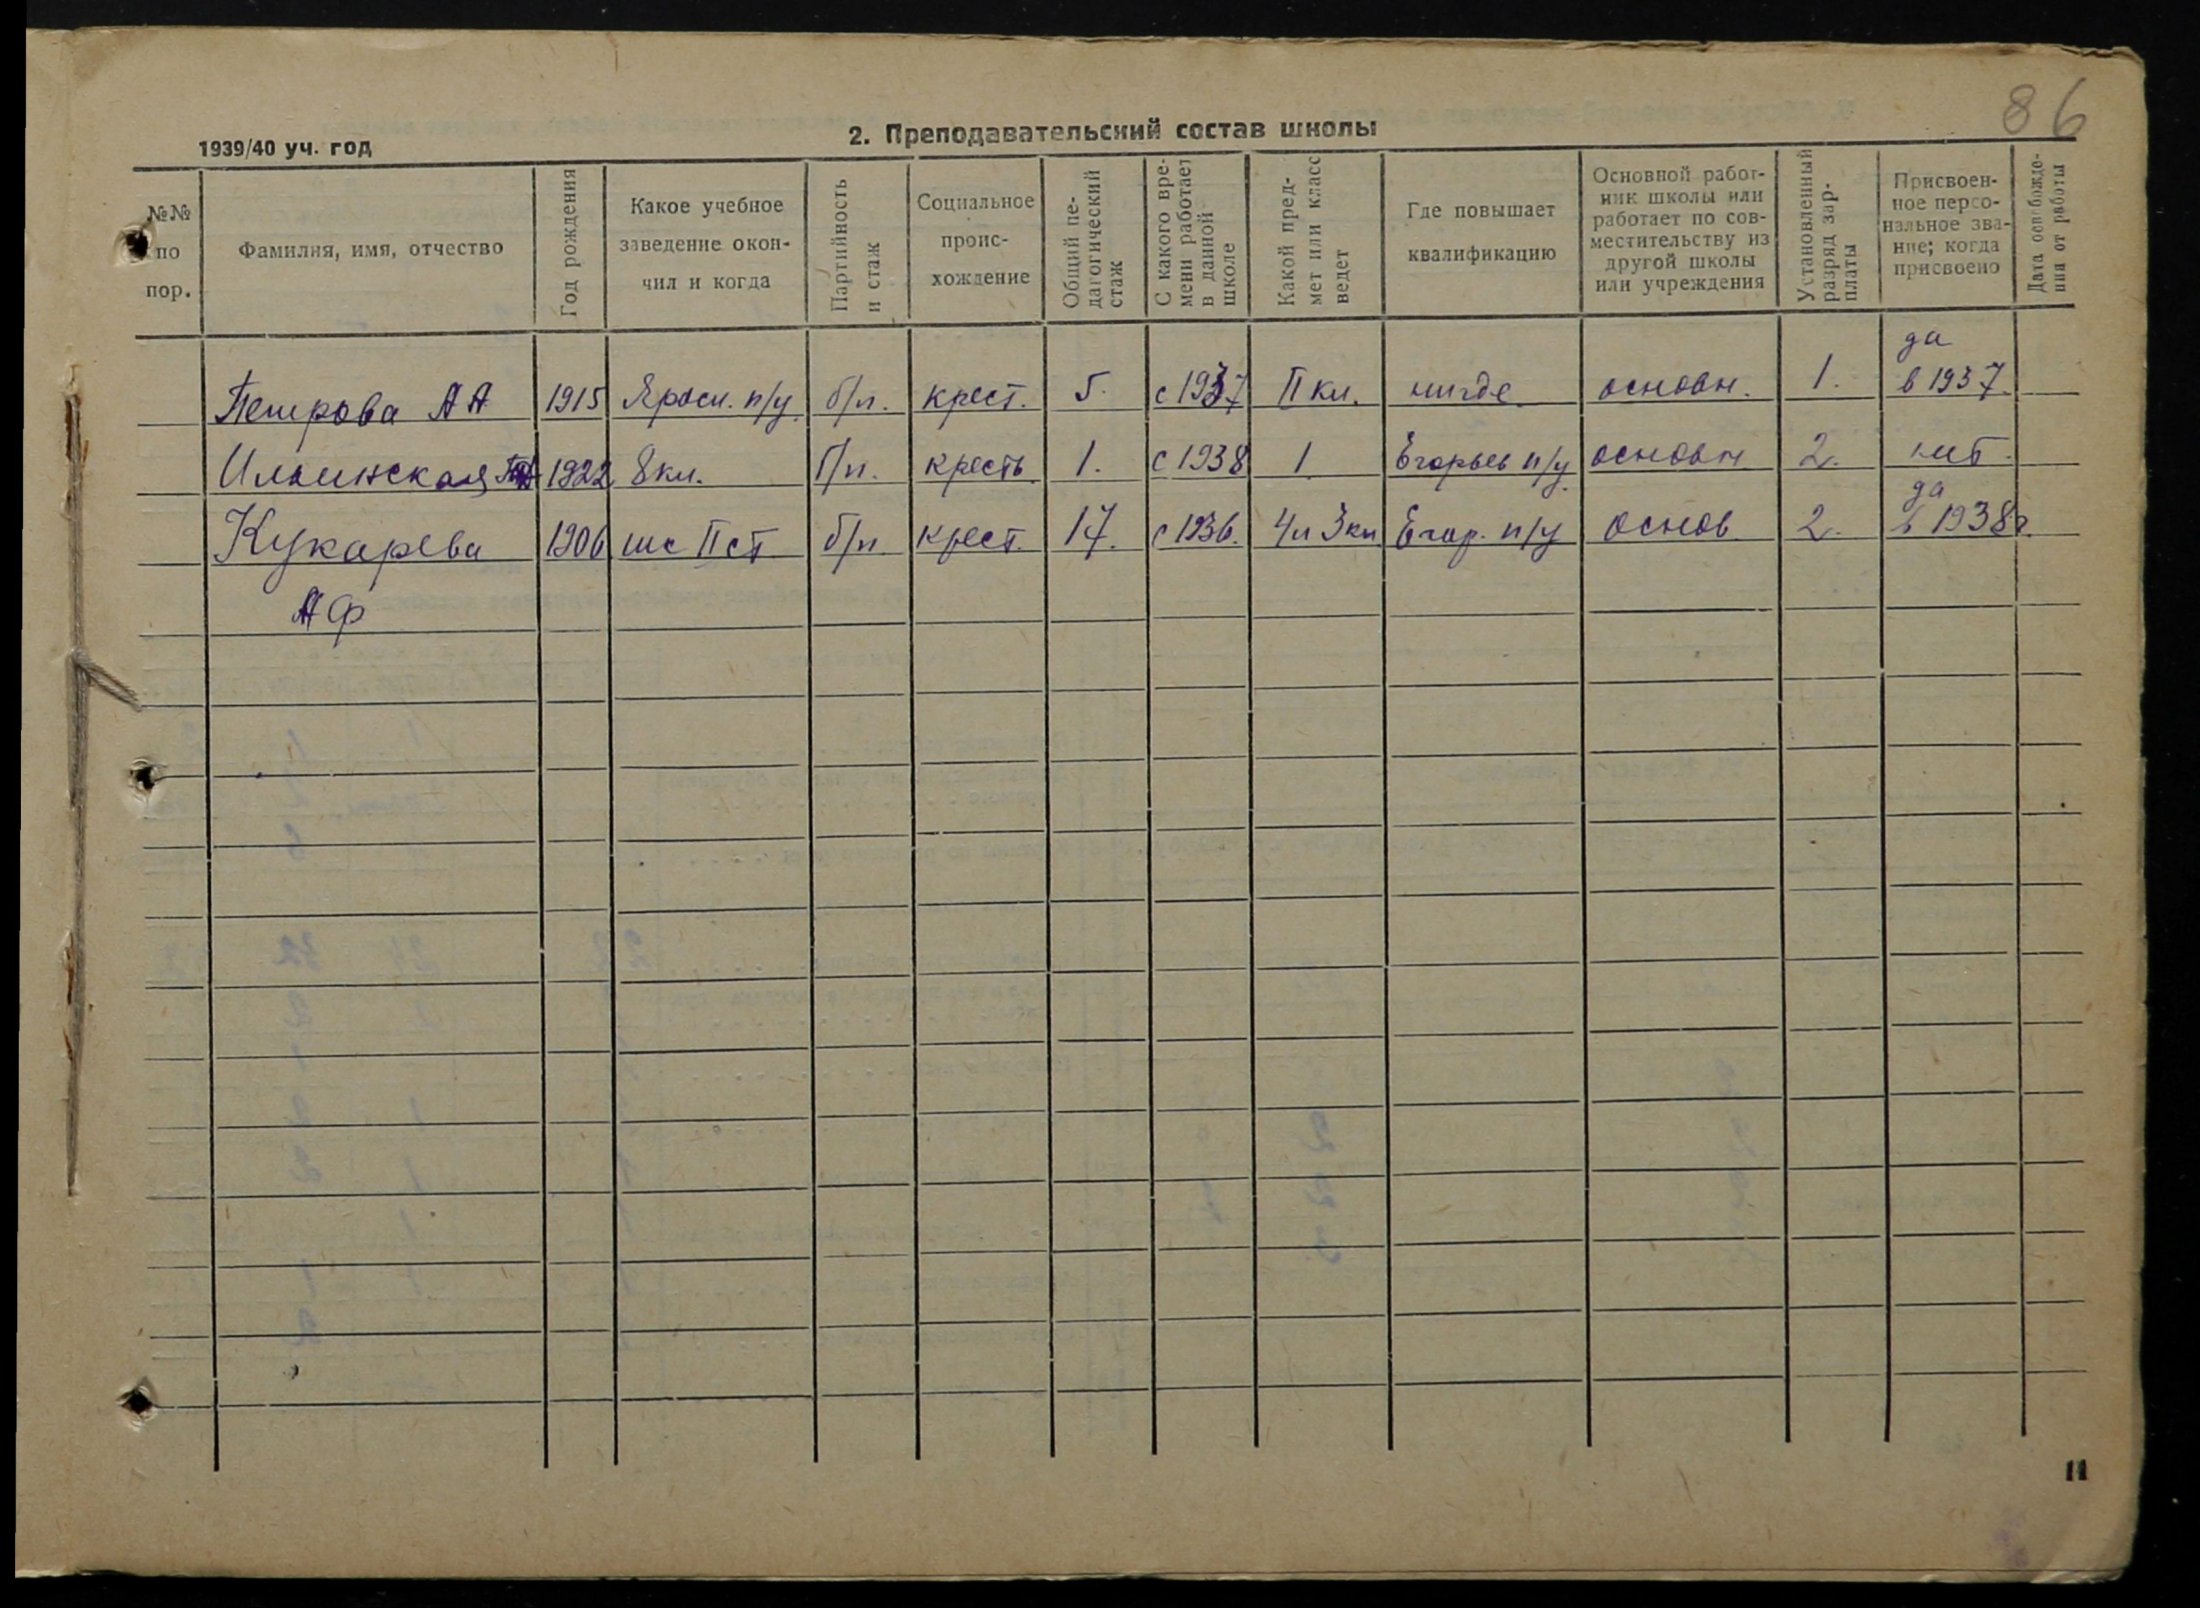 86
1939/40 уч. год
2. Преподавательский состав школы
№№ по пор.
Фамилия, имя, отчество
Год рождения
Какое учебное заведение окон-чил и когда
Партийность и стаж
Социальное проис-хождение
Общий пе-дагогический стаж
С какого вре-мени работает в данной школе
Какой пред-мет или класс ведет
Где повышает квалификацию
Основной работ-ник школы или работает по сов-местительству из другой школы или учреждения
Установленный разряд зар-платы
Присвоен-ное персо-нальное зва-ние; когда присвоено
Дата освобожде-ния от работы
Петрова АА 1915 п/у б/п. крест. 5. с 1937 II кл. нигде основн. 1. да в 1937
Ильинская 1922 8 кл. б/п. кресть 1. с 1938 1 Егорьев п/у основн 2. нет.
Кукарева 1906 шк II ст б/п. крест. 17. с 1936. 4 и 3 кл Егор. п/у основ. 2. да в 1938 г.
АФ
11